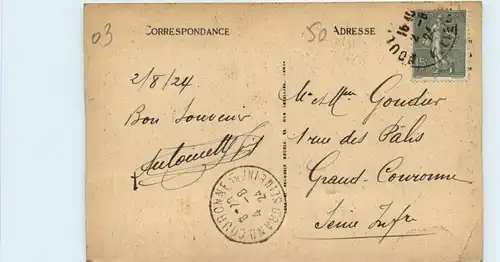 03
50
CORRESPONDANCE
ADRESSE
2/8/24
Bon Souvenir
Antoinette
Mr et Mme Goudier
1 rue des Pâlis
Grand-Couronne
Seine Infre
GRAND COURONNE
SEINE INFRE
8-20
4-8
24